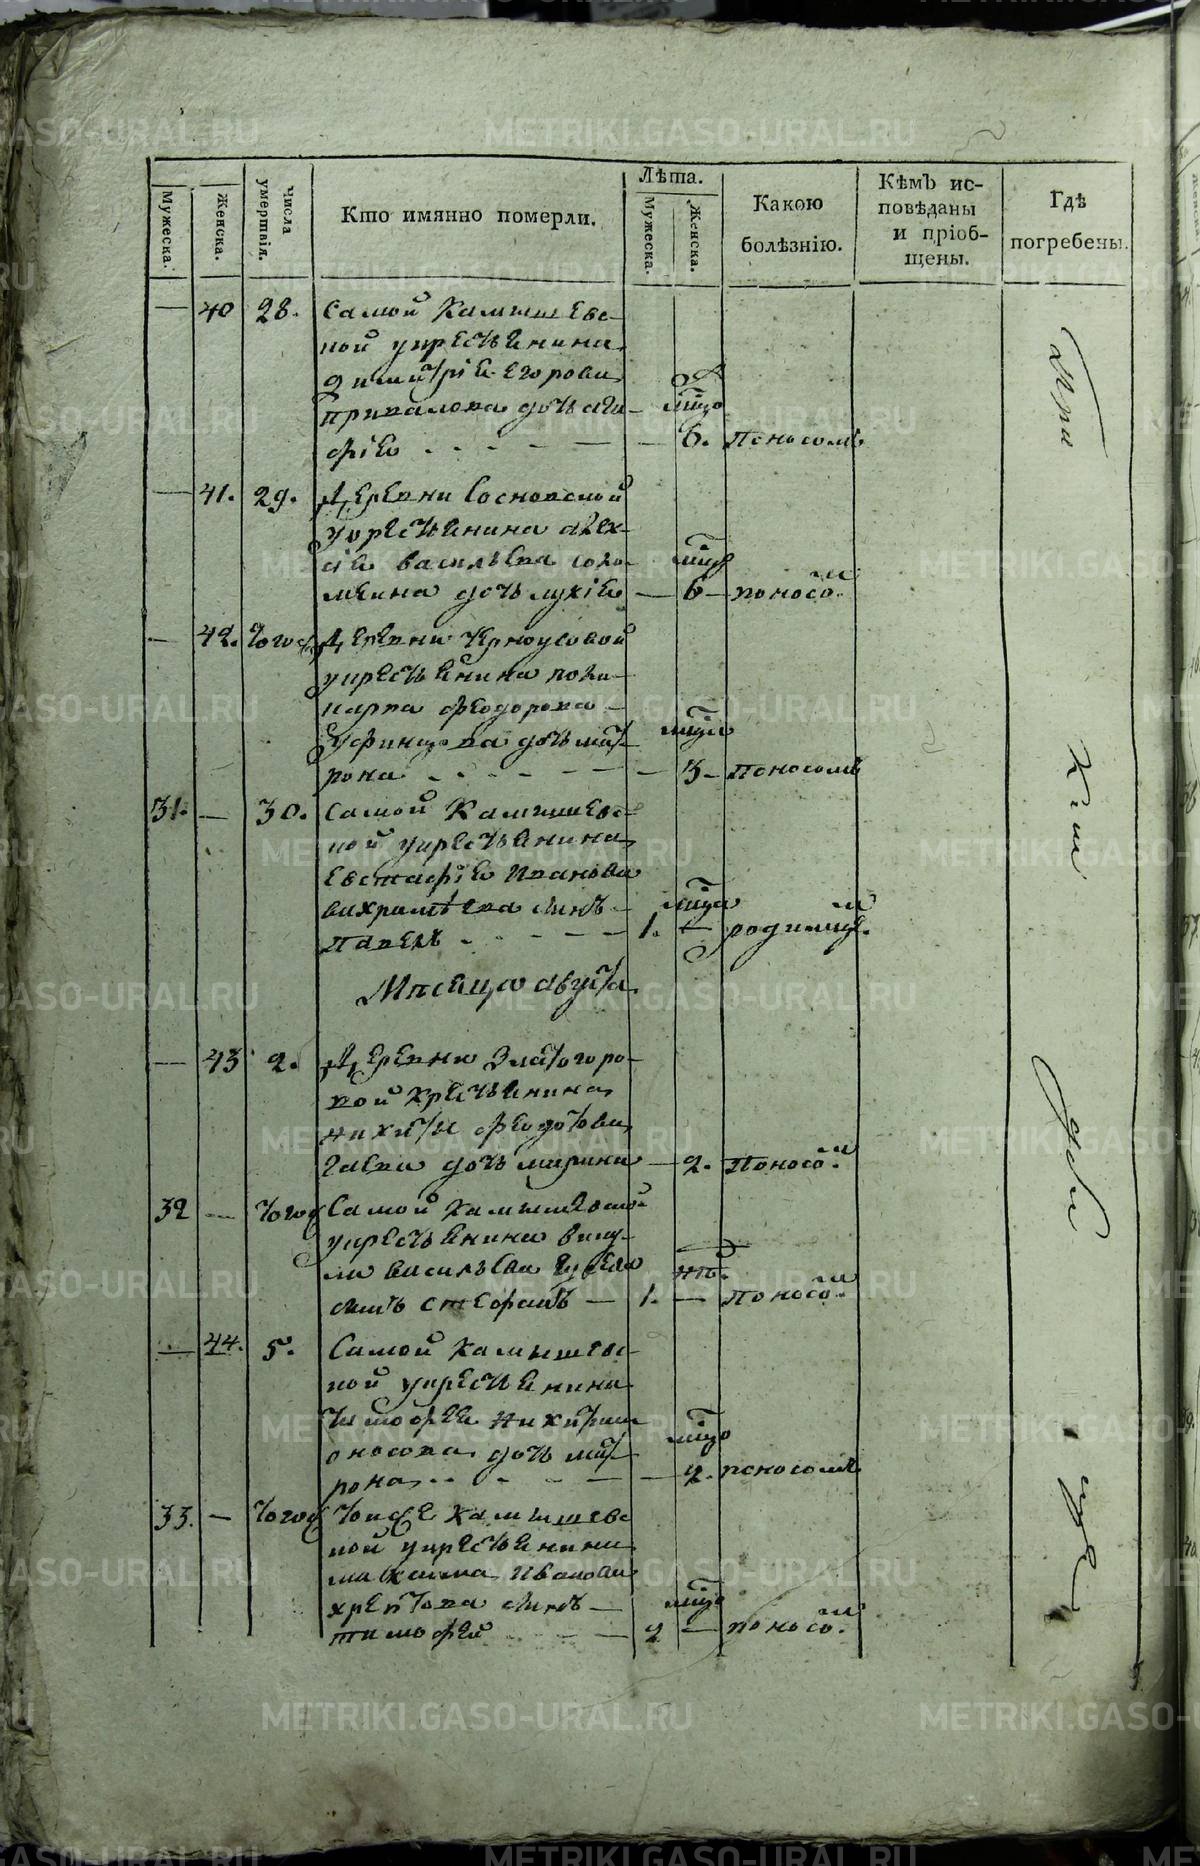 METRIKI.GASO-URAL.RU
Мужеска.
Женска.
числа умертвія.
Кто имянно померли.
Лѣта.
Мужеска.
Женска.
Какою болѣзнію.
Кѣмъ исповѣданы и пріобщены.
Гдѣ погребены.
— 40 28. Самой Камышевс-
кой крестьянина
Димитріе Егорова
дочь Ага-
фіе — 6. поносомъ
— 41. 29. Деревни Сосновской
крестьянина Алек-
сіе Васильева Соло-
меина дочь Лукіе — 6 — поносом.
— 42. того Деревни Черноусовой
крестьянина Поли-
карпа Феодорова
Уфинцова дочь Мат-
рона — 3 — поносомъ
31. — 30. Самой Камышевс-
кой крестьянина
Евстафіе Иванова
Вахрамѣева сынъ
Павелъ — 1. — родимце.
Мѣсяца августа
— 43 2. Деревни Златогоро-
вой крестьянина
Никиты Феодотова
дочь Марина — 2. поносом.
32 — того Самой Камышевской
крестьянина Вику-
ла Васильева
сынъ Стефанъ — 1. — поносом.
— 44. 5. Самой Камышевс-
кой крестьянина
Тимофее Никитина
дочь Мат-
рона — 2. поносомъ
33. — того Тоейже Камышевс
кой крестьянина
Максима Иванова
Храптова сынъ —
Тимофей — 2 — поносом.
При